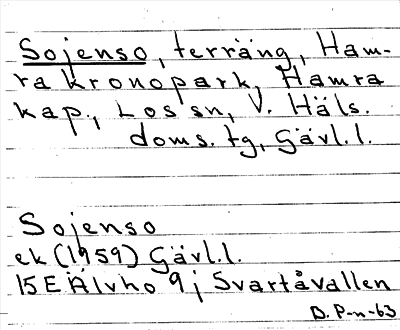 Sojenso, terräng, Ham-
ra kronopark, Hamra
kap., Los sn, V. Häls.
doms. tg, Gävl.l.
Sojenso
ek (1959) Gävl.l.
15E Älvho 9j Svartåvallen
D. P-n-63